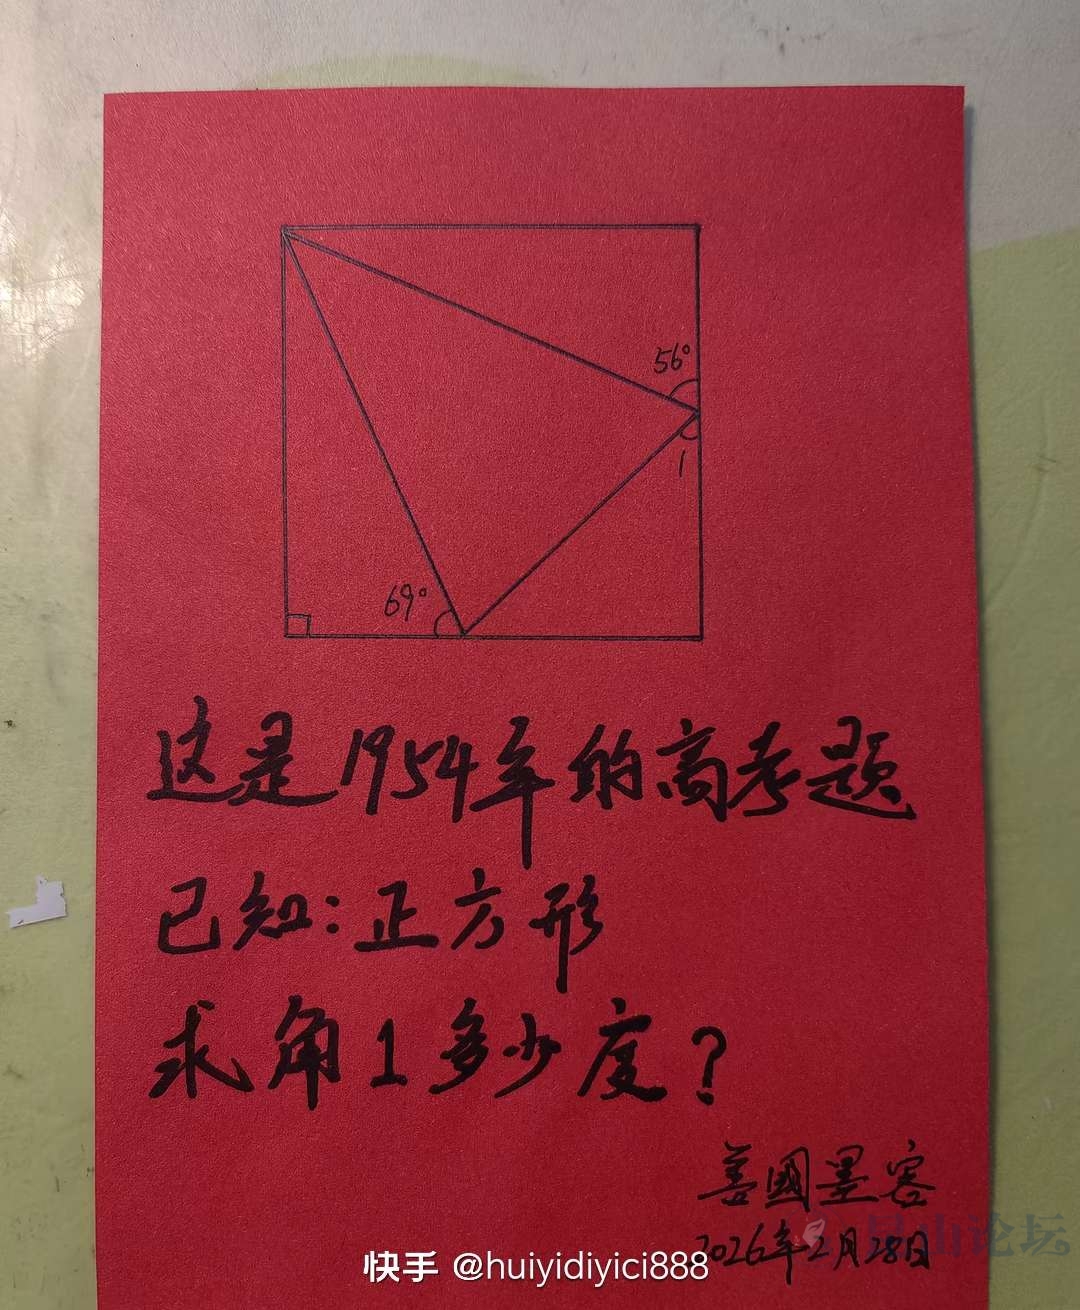 56°
1
69°
这是1954年的高考题
已知:正方形
求角1多少度?
善國墨客
2026年2月28日
快手 @huiyidiyici888